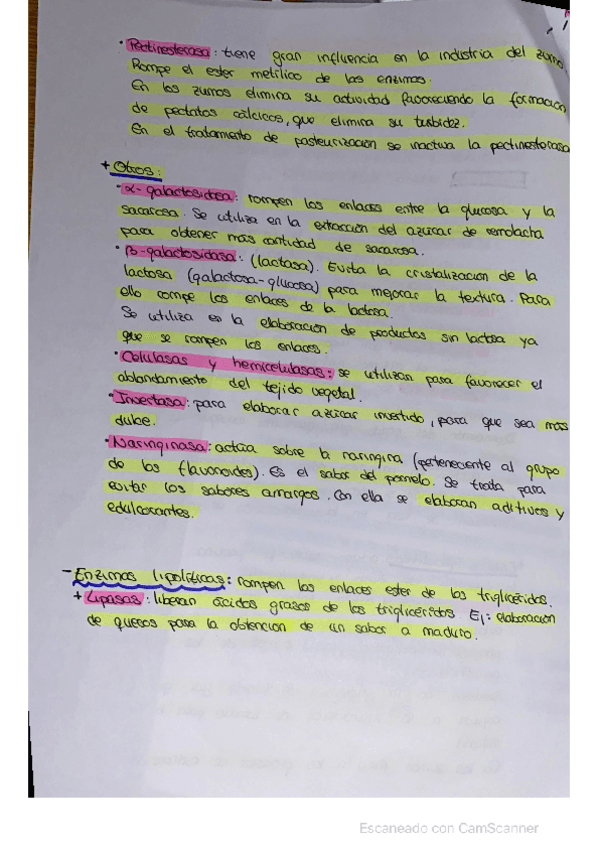 · Pectinesterasa: tiene gran influencia en la industria del zumo.
Rompe el ester metílico de las enzimas.
En los zumos elimina su actividad favoreciendo la formación
de pectatos cálcicos, que elimina su turbidez.
En el tratamiento de pasteurización se inactiva la pectinesterasa
+ Otros:
· α-galactosidea: rompen los enlaces entre la glucosa y la
sacarosa. Se utiliza en la extracción del azúcar de remolacha
para obtener más cantidad de sacarosa.
· β-galactosidasa: (lactasa). Evita la cristalización de la
lactosa (galactosa-glucosa) para mejorar la textura. Para
ello rompe los enlaces de la lactosa.
Se utiliza en la elaboración de productos sin lactosa ya
que se rompen los enlaces.
· Celulasas y hemicelulasas: se utilizan para favorecer el
ablandamiento del tejido vegetal.
· Invertasa: para elaborar azúcar invertido, para que sea más
dulce.
· Naringinasa: actúa sobre la naringina (perteneciente al grupo
de los flavonoides). Es el sabor del pomelo. Se trata para
evitar los sabores amargos. Con ella se elaboran aditivos y
edulcorantes.
- Enzimas lipolíticas: rompen los enlaces ester de los triglicéridos.
+ Lipasas: liberan ácidos grasos de los triglicéridos. Ej: elaboración
de quesos para la obtención de un sabor a maduro.
Escaneado con CamScanner